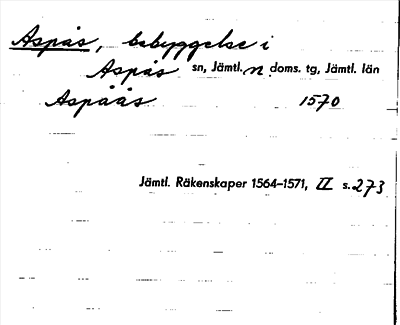 Aspås, bebyggelse i
Aspås sn, Jämtl. n. doms. tg, Jämtl. län
Aspåås 1570
Jämtl. Räkenskaper 1564–1571, II s. 273